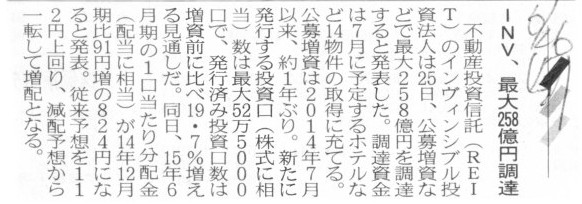 6/26
ＩＮＶ、最大258億円調達
不動産投資信託（ＲＥＩ
Ｔ）のインヴィンシブル投
資法人は25日、公募増資な
どで最大２５８億円を調達
すると発表した。調達資金
は７月に予定するホテルな
ど14物件の取得に充てる。
公募増資は２０１４年７月
以来、約１年ぶり。新たに
発行する投資口（株式に相
当）数は最大52万５０００
口で、発行済み投資口数は
増資前に比べ19・７％増え
る見通しだ。同日、15年６
月期の１口当たり分配金
（配当に相当）が14年12月
期比91円増の８２４円にな
ると発表。従来予想を１１
２円上回り、減配予想から
一転して増配となる。